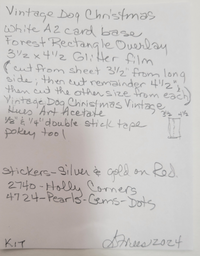 Vintage Dog Christmas
White A2 card base
Forest Rectangle Overlay
3½ x 4½ Glitter film
(cut from sheet 3½ from long
side, then cut remainder 4½",
then cut the other size from each)
Vintage Dog Christmas Vintage
Hues Art Acetate
3½ 4½
⅛" & ¼" double stick tape
pokey tool
Stickers - Silver & gold on Red
2740 - Holly Corners
4724 - Pearls-Gems-Dots
KIT
2024